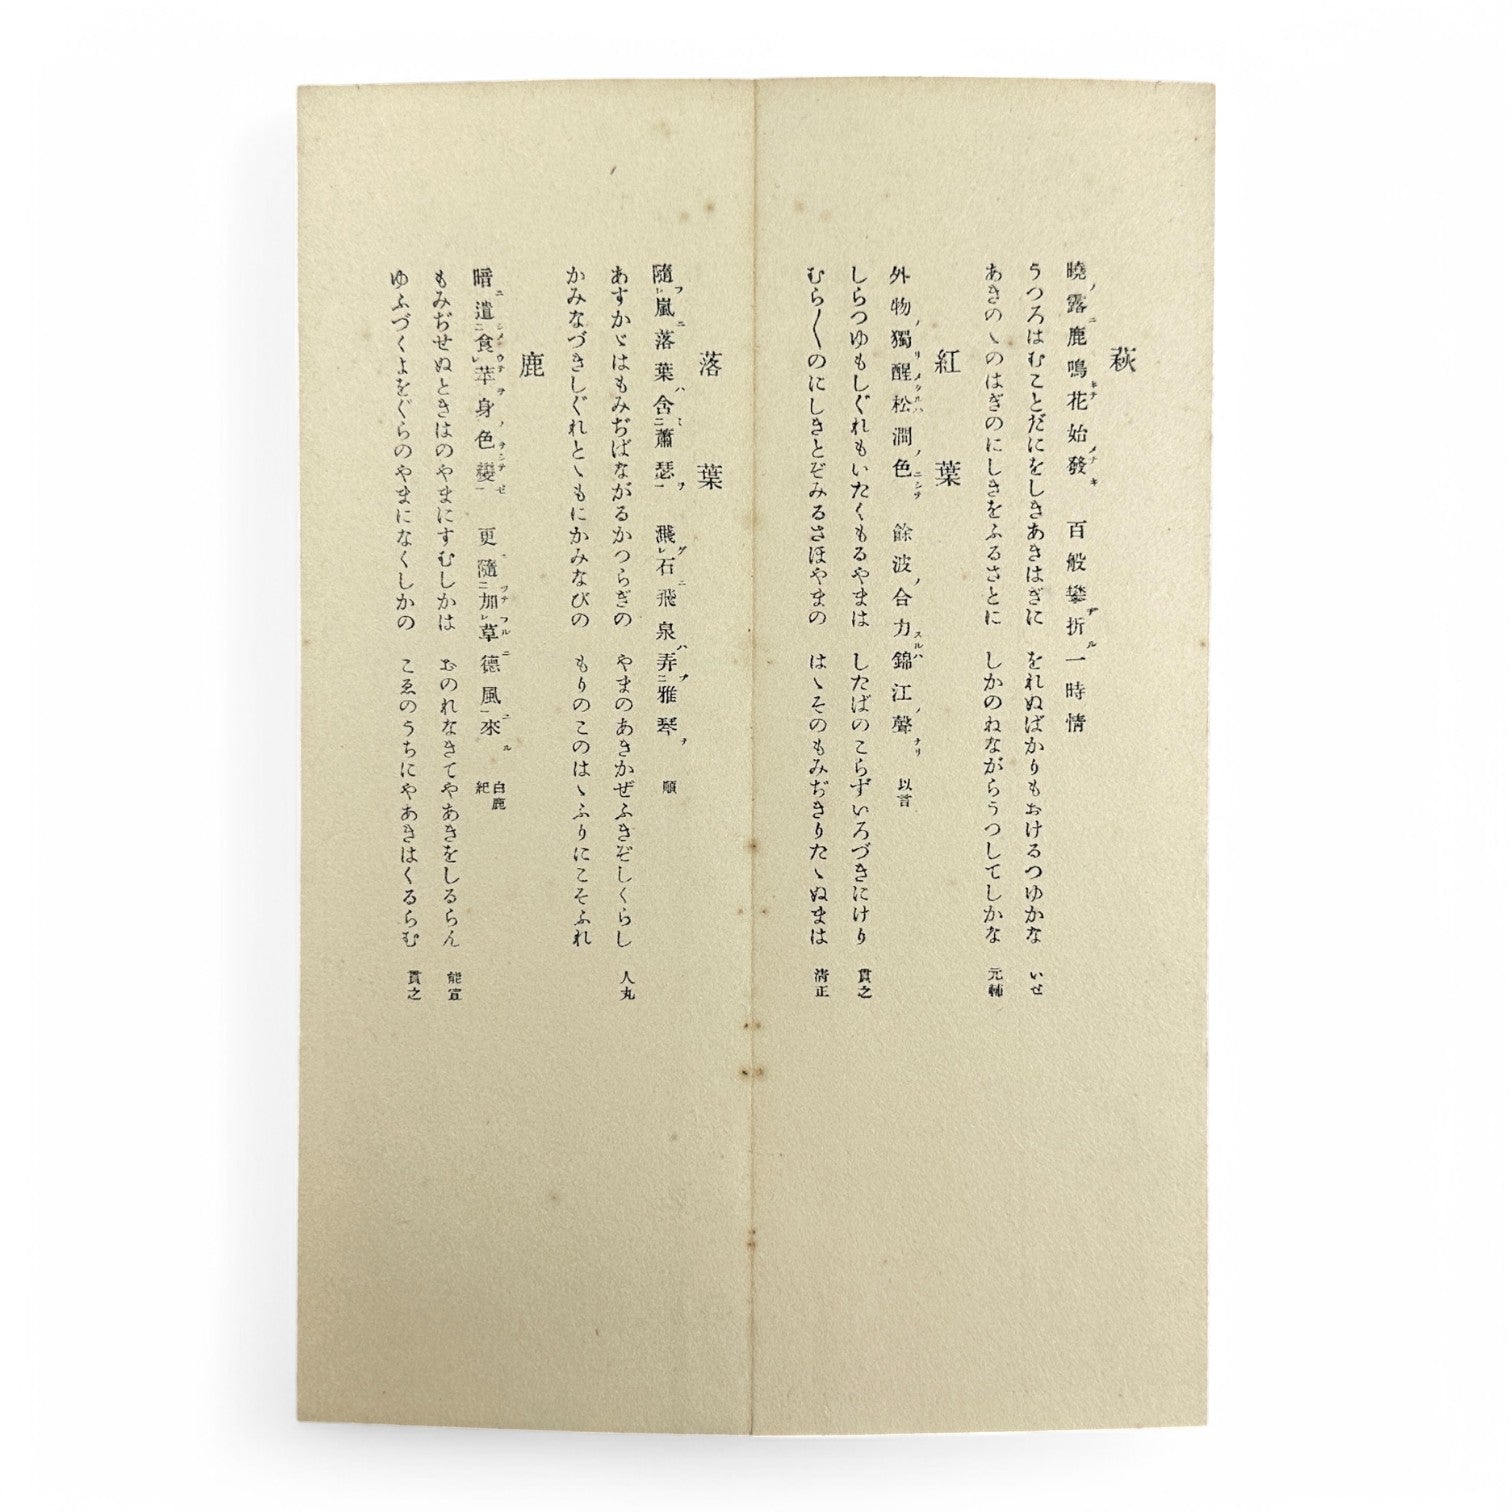 萩
曉ノ露ニ鹿鳴キテ花始メテ發キ 百般攀ヂ折ル一時情
うつろはむことだにをしきあきはぎに をれぬばかりもおけるつゆかな いせ
あきのゝのはぎのにしきをふるさとに しかのねながらうつしてしかな 元輔
紅葉
外物ノ獨リ醒メタルハ松澗ノ色 餘波ノ合力スルハ錦江ノ聲ナリ 以言
しらつゆもしぐれもいたくもるやまは したばのこらずいろづきにけり 貫之
むら〱のにしきとぞみるさほやまの はゝそのもみぢきりたゝぬまは 淸正
落葉
隨フレ嵐ニ落葉ハ含ミ二蕭瑟ヲ一 濺グレ石ニ飛泉ハ弄ブ二雅琴ヲ 順
あすかゞはもみぢばながるかつらぎの やまのあきかぜふきぞしくらし 人丸
かみなづきしぐれとゝもにかみなびの もりのこのはゝふりにこそふれ
鹿
暗ニ遣シメテ二食ウテレ苹ヲ身ノ色ヲシテ變ゼ一 更ニ隨ツテ二加フルレ草ニ德風ニ一來ル 白鹿 紀
もみぢせぬときはのやまにすむしかは おのれなきてやあきをしるらん 能宣
ゆふづくよをぐらのやまになくしかの こゑのうちにやあきはくるらむ 貫之